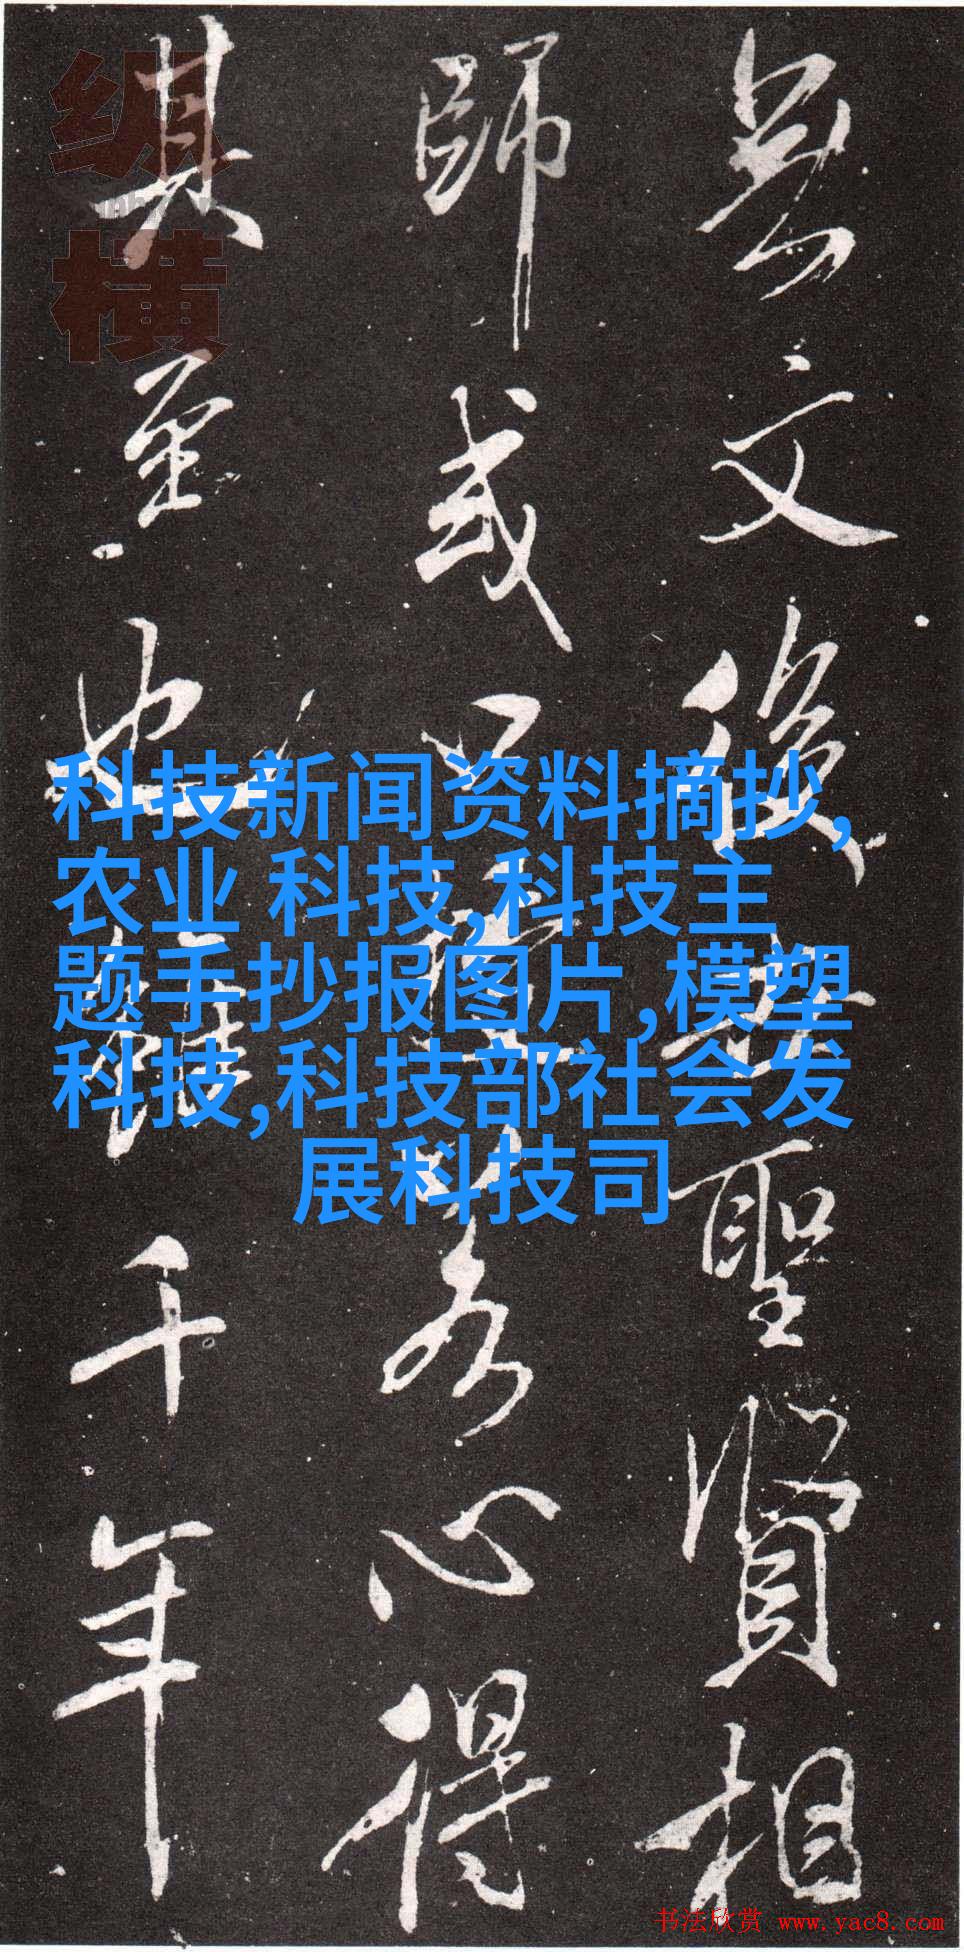 文後聖賢相
師或心得
其至也雖千年
横
科技新闻资料摘抄,
农业 科技,科技主
题手抄报图片,模塑
科技,科技部社会发
展科技司
书法欣赏 www.yac8.com